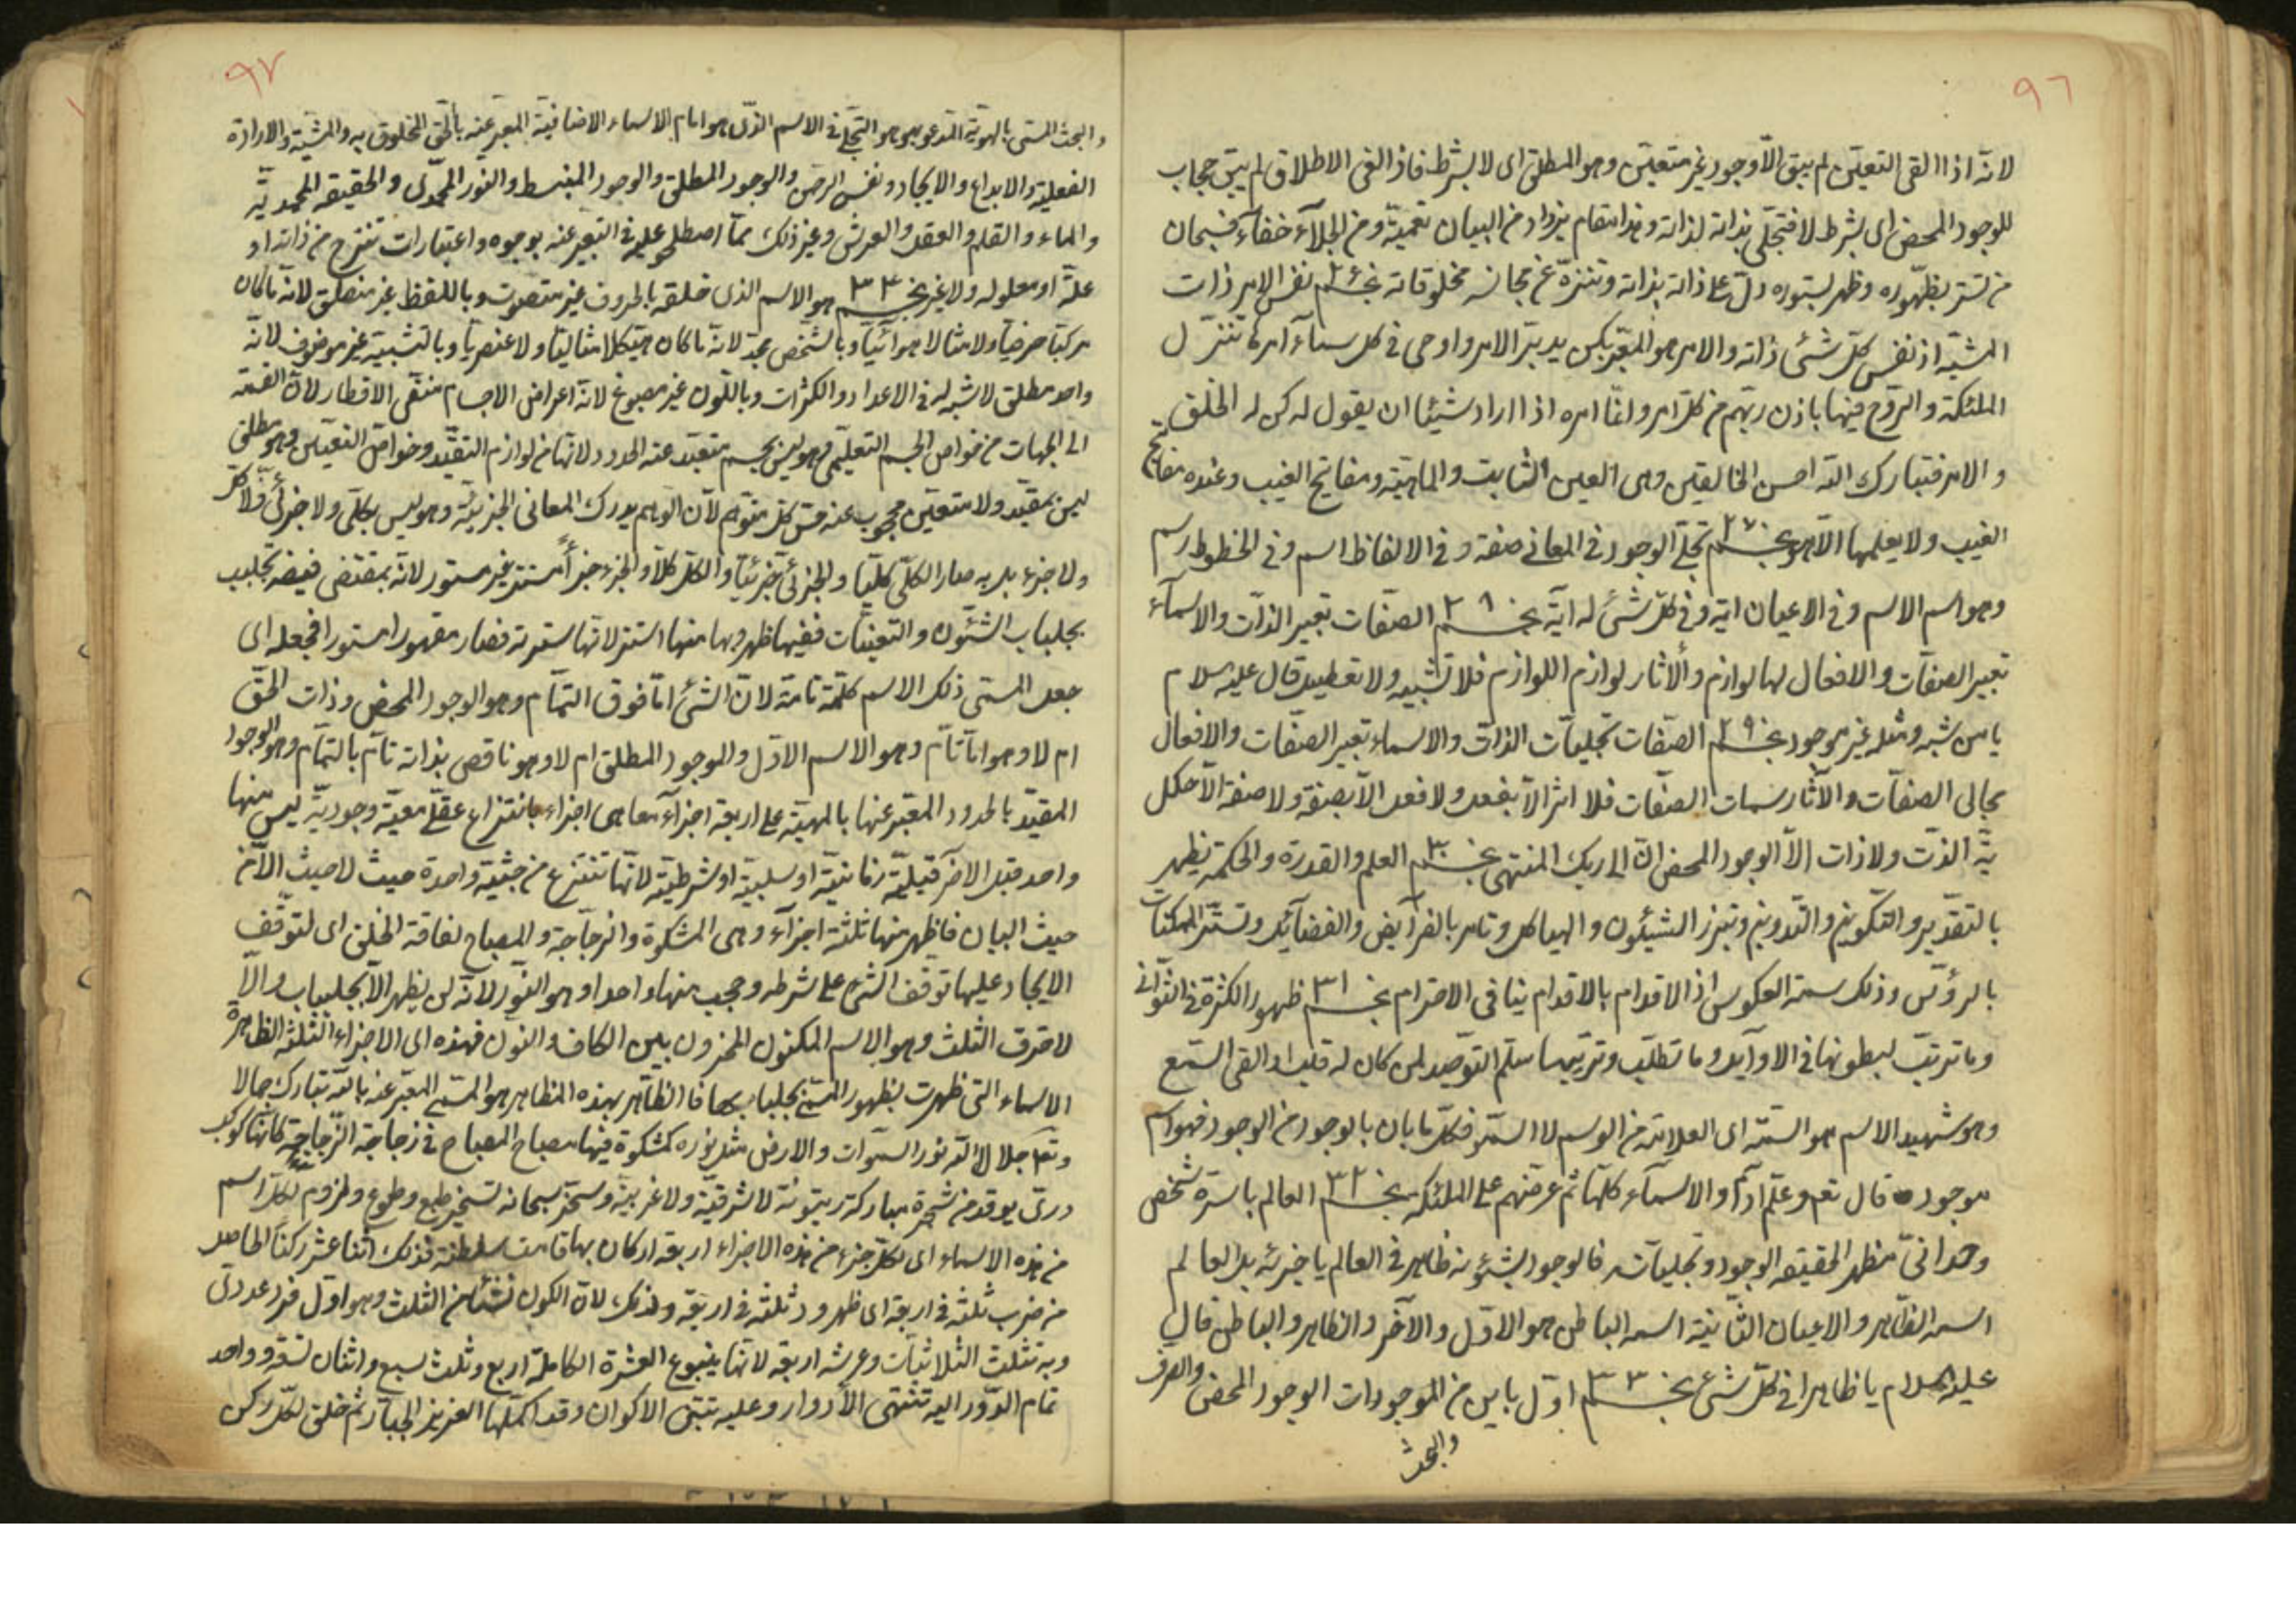 ٩٦
لانه اذا القى التعين لم يبق الّا وجود غير متعين وهو المطلق اى لا بشرط فاذا القى الاطلاق لم يبق حجاب
للوجود المحض اى بشرط لا فتجلى بذاته لذاته وهذا مقام يزداد من البيان تعمية ومن الجلاء خفاء فسبحان
من تستر بظهوره وظهر بستوره دل على ذاته بذاته وتنزه عن مجانسة مخلوقاته نفس الامر ذات
المشية اذ نفس كل شئ ذاته والامر هو المعبر بكن يدبر الامر واوحى فى كل سماء امرها تنزل
الملئكة والروح فيها باذن ربهم من كل امر وانما امره اذا اراد شيئا ان يقول له كن له الخلق
والامر فتبارك الله احسن الخالقين وهى العين الثابت والماهية ومفاتيح الغيب وعنده مفاتيح
الغيب ولا يعلمها الّا هو ٢٧ تجلى الوجود فى المعانى صفة وفى الالفاظ اسم وفى الخطوط رسم
وهو اسم الاسم وفى الاعيان اية وفى كل شئ له آية ٢٨ الصفات تعبير الذات والاسماء
تعبير الصفات والافعال لها لوازم والآثار لوازم اللوازم فلا تشبيه ولا تعطيل قال عليه سلام
يا من شبه ومثله غير موجود ٢٩ الصفات تجليات الذات والاسماء تعبير الصفات والافعال
مجالى الصفات والآثار سمات الصفات فلا اثر الّا بفعل ولا فعل الّا بصفة ولا صفة الّا
ولا ذات الّا الوجود المحض ان الى ربك المنتهى ٣٠ العلم والقدرة والحكمة يظهر
بالتقدير والتكوين والتدوين وتبرز الشئون والهياكل وتامر بالفرآيض والفضآيل وتستر الممكنات
وذلك سمة العكوس اذ الاقدام بالاقدام ينافى الاحترام ٣١ ظهور الكثرة فى الثوانى
وما ترتب لبطونها فى الاوآيل وما تطلب وترتيبها سلم التوحيد لمن كان له قلب او القى السمع
وهو شهيد الاسم هو السمة اى العلامة من الوسم لا السمو فكل ما بان بالوجود من الوجود فهو اسم
موجوده قال تعم وعلم آدم الاسمآء كلها ثم عرضهم على الملئكة ٣٢ العالم باسره شخص
وحدانى مظهر الحقيقه الوجود وتجلياته فالوجود بشئونه ظاهر فى العالم باجزئه بل العالم
اسمه الظاهر والاعيان الثابتة اسمه الباطن هو الاول والآخر والظاهر والباطن قال
عليه السلام يا ظاهرا فى كل شئ ٣٣ اول باين من الموجودات الوجود المحض والصرف
والبحث
٩٧
والبحث المسمى بالهوية المدعو بهو هو التجلى فى الاسم الذى هو امام الاسماء الاضافية المعبر عنه بالحق المخلوق به والمشية والارادة
الفعلية والابداع والايجاد ونفس الرحمن والوجود المطلق والوجود المنبسط والنور المحمدى والحقيقه المحمدية
والماء والقلم والعقل والعرش وغير ذلك مما اصطلح عليه فى التعبير عنه بوجوه واعتبارات تنتزع من ذاته او
علة او معلوله ولا غير ٣٤ هو الاسم الذى خلقه بالحروف غير متصوت وباللفظ غير منطق لانه ما كان
مركبا حرفيا ولا مثالا هوائيا وبالشخص مجسد لانه ما كان هيكلا مثاليا ولا عنصريا وبالتشبيه غير موصوف لانه
واحد مطلق لا شبه له فى الاعداد والكثرات وباللون غير مصبوغ لانه اعراض الاجسام منفى الاقطار لان القسمة
الى الجهات من خواص الجسم التعليمى وهو ليس بجسم مبعد عنه الحدود لانها من لوازم التقيد وخواص التعين وهو مطلق
ليس بمقيد ولا متعين محجوب عنه حس كل متوهم لان الوهم يدرك المعانى الجزئية وهو ليس بكلى ولا جزئى ولا كل
ولا جزء بل به صار الكلى كليا والجزئى جزئيا والكل كلا والجزء جزأ مستتر غير مستور لانه بمقتضى فيضه تجلبب
بجلباب الشئون والتعينات ففيها ظهر وبها منها استتر لانها سترته فصار مقهورا مستورا فجعله اى
جعل المسمى ذلك الاسم كلمة تامة لان الشئ اما فوق التمام وهو الوجود المحض وذات الحق
ام لا وهو اما تآم وهو الاسم الاول والموجود المطلق ام لا وهو ناقص بذاته تآم بالتمام وهو الوجود
المقيد بالحدود المعبر عنها بالمهية على اربعة اجزآء معا هى اجزاء بانتزاع عقلى معية وجودية ليس منها
واحد قبل الآخر قبلية زمانية او سلبية او شرطية لانها تنتزع من حيثية واحدة حيث لا حيث الا من
حيث البيان فاظهر منها ثلثة اجزآء وهى المشكوة والزجاجة والمصباح لفاقة الخلق اى لتوقف
الايجاد عليها توقف الشئ على شرطه وحجب منها واحدا وهو النور لانه لن يظهر الّا بجلباب والّا
لاحترق الثلث وهو الاسم المكنون المخزون بين الكاف والنون فهذه اى الاجزاء الثلثه الظاهرة
الاسماء التى ظهرت بظهور المسمى بجلبابها فالظاهر بهذه المظاهر هو المسمى المعبر عنه بالله تبارك جمالا
وتعا جلالا الله نور السموات والارض مثل نوره كمشكوة فيها مصباح المصباح فى زجاجة الزجاجة كانها كوكب
درى يوقد من شجرة مباركة زيتونة لا شرقية ولا غربية وسخر سبحانه تسخير طبع وطوع ولزوم لكل اسم
من هذه الاسماء اى لكل جزء من هذه الاجزاء اربعة اركان بها قامت سلطنة فذلك اثنا عشر ركنا الحاصل
من ضرب ثلثه فى اربعة اى ظهر ود ثلثه فى اربعة وذلك لان الكون نشئا من الثلث وهو اول فرد عددى
وبه تثلث الثلاثيات وعرشه اربعه لانها ينبوع العشرة الكاملة اربع وثلث سبع واثنان تسعة وواحد
تمام الدور اليه تنتهى الادوار وعليه تبتنى الاكوان وقد اكملها العزيز الجبار ثم خلق لكل ركن